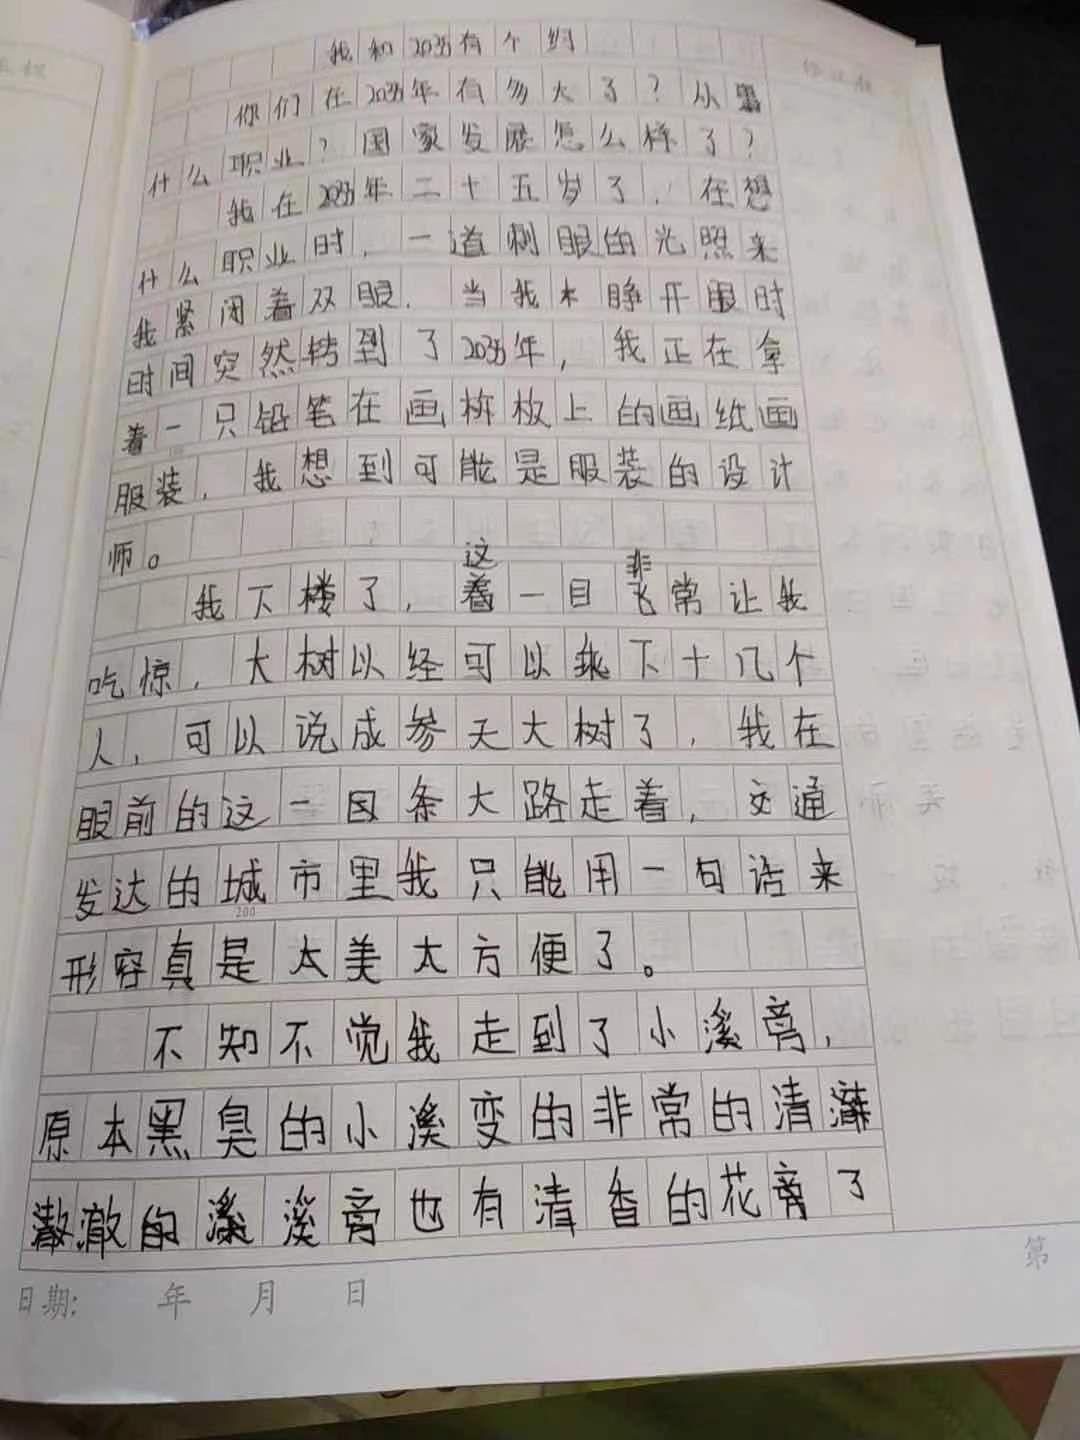 我和2035有个约
你们在2035年有多大了？从事
什么职业？国家发展怎么样了？
我在2035年二十五岁了，在想
什么职业时，一道刺眼的光照来
我紧闭着双眼，当我木睁开眼时
时间突然转到了2035年，我正在拿
着一只铅笔在画板上的画纸画
服装，我想到可能是服装的设计
师。
这 非
我下楼了，着一目飞常让我
吃惊，大树以经可以乘下十几个
人，可以说成参天大树了，我在
眼前的这一条大路走着，交通
发达的城市里我只能用一句话来
200
形容真是太美太方便了。
不知不觉我走到了小溪旁，
原本黑臭的小溪变的非常的清
澈的溪旁也有清香的花旁了
日期： 年 月 日
第